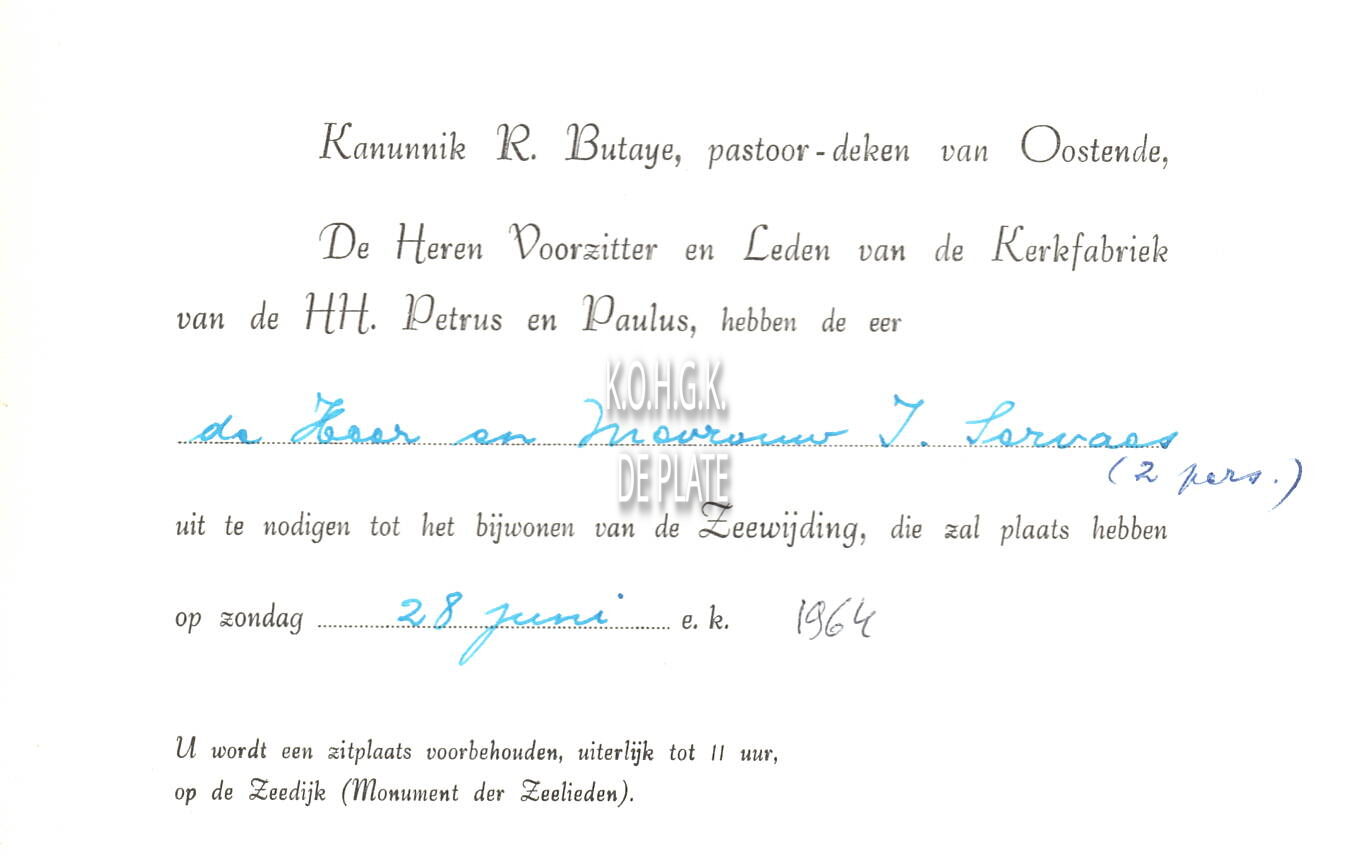 Kanunnik R. Butaye, pastoor-deken van Oostende,
De Heren Voorzitter en Leden van de Kerkfabriek
van de HH. Petrus en Paulus, hebben de eer
K.O.H.G.K.
de Heer en Mevrouw J. Servaes
(2 pers.)
DE PLATE
uit te nodigen tot het bijwonen van de Zeewijding, die zal plaats hebben
op zondag 28 juni e. k. 1964
U wordt een zitplaats voorbehouden, uiterlijk tot 11 uur,
op de Zeedijk (Monument der Zeelieden).